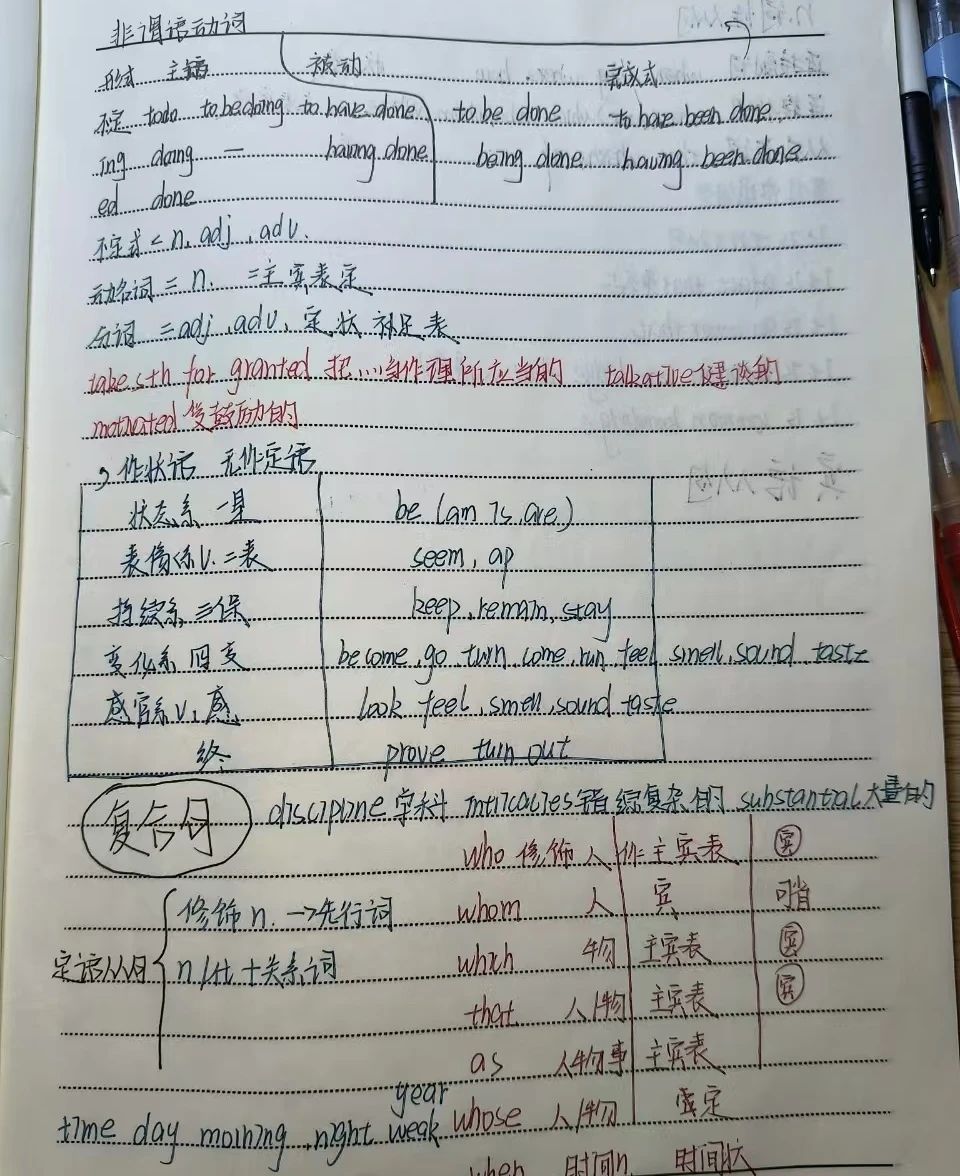 非谓语动词
形式 主语 被动 完成式
不定 todo to be doing to have done to be done to have been done
ing doing — having done being done having been done
ed done
不定式 < n, adj, adv.
动名词 = n. = 主宾表定
分词 = adj, adv, 定状补足表
take sth for granted 把...当作理所应当的 talkative健谈的
motivated 受鼓励的
作状语 无作定语
状态系 一是 be (am is are)
表像系v. 二表 seem, ap
持续系 三保 keep, remain, stay
变化系 四变 become, go turn come, run feel smell, sound taste
感官系v, 感 look feel, smell, sound taste
终 prove turn out
复合句 discipline学科 intricacies错综复杂的 substantial大量的
who 修饰人 作主宾表 宾
修饰 n. →先行词 whom 人 宾 可省
定语从句 n/代+关系词 which 物 主宾表 宾
that 人/物 主宾表 宾
as 人物事 主宾表
year
time day morning, night weak whose 人/物 定
when 时间n. 时间状